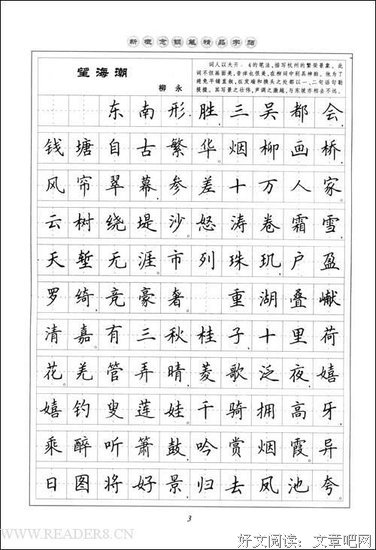 新概念钢笔精品字帖
望海潮
柳永
词人以大开
4的笔法,描写杭州的繁荣景象。此
东南形胜三吴都会
钱塘自古繁华烟柳画桥
风帘翠幕参差十万人家
云树绕堤沙怒涛卷霜雪
天堑无涯市列珠玑户盈
罗绮竞豪奢 重湖叠巘
清嘉有三秋桂子十里荷
花羌管弄晴菱歌泛夜嬉
嬉钓叟莲娃千骑拥高牙
乘醉听箫鼓吟赏烟霞异
日图将好景归去凤池夸
3
WWW.READERS8.CN
好文阅读:文章吧网